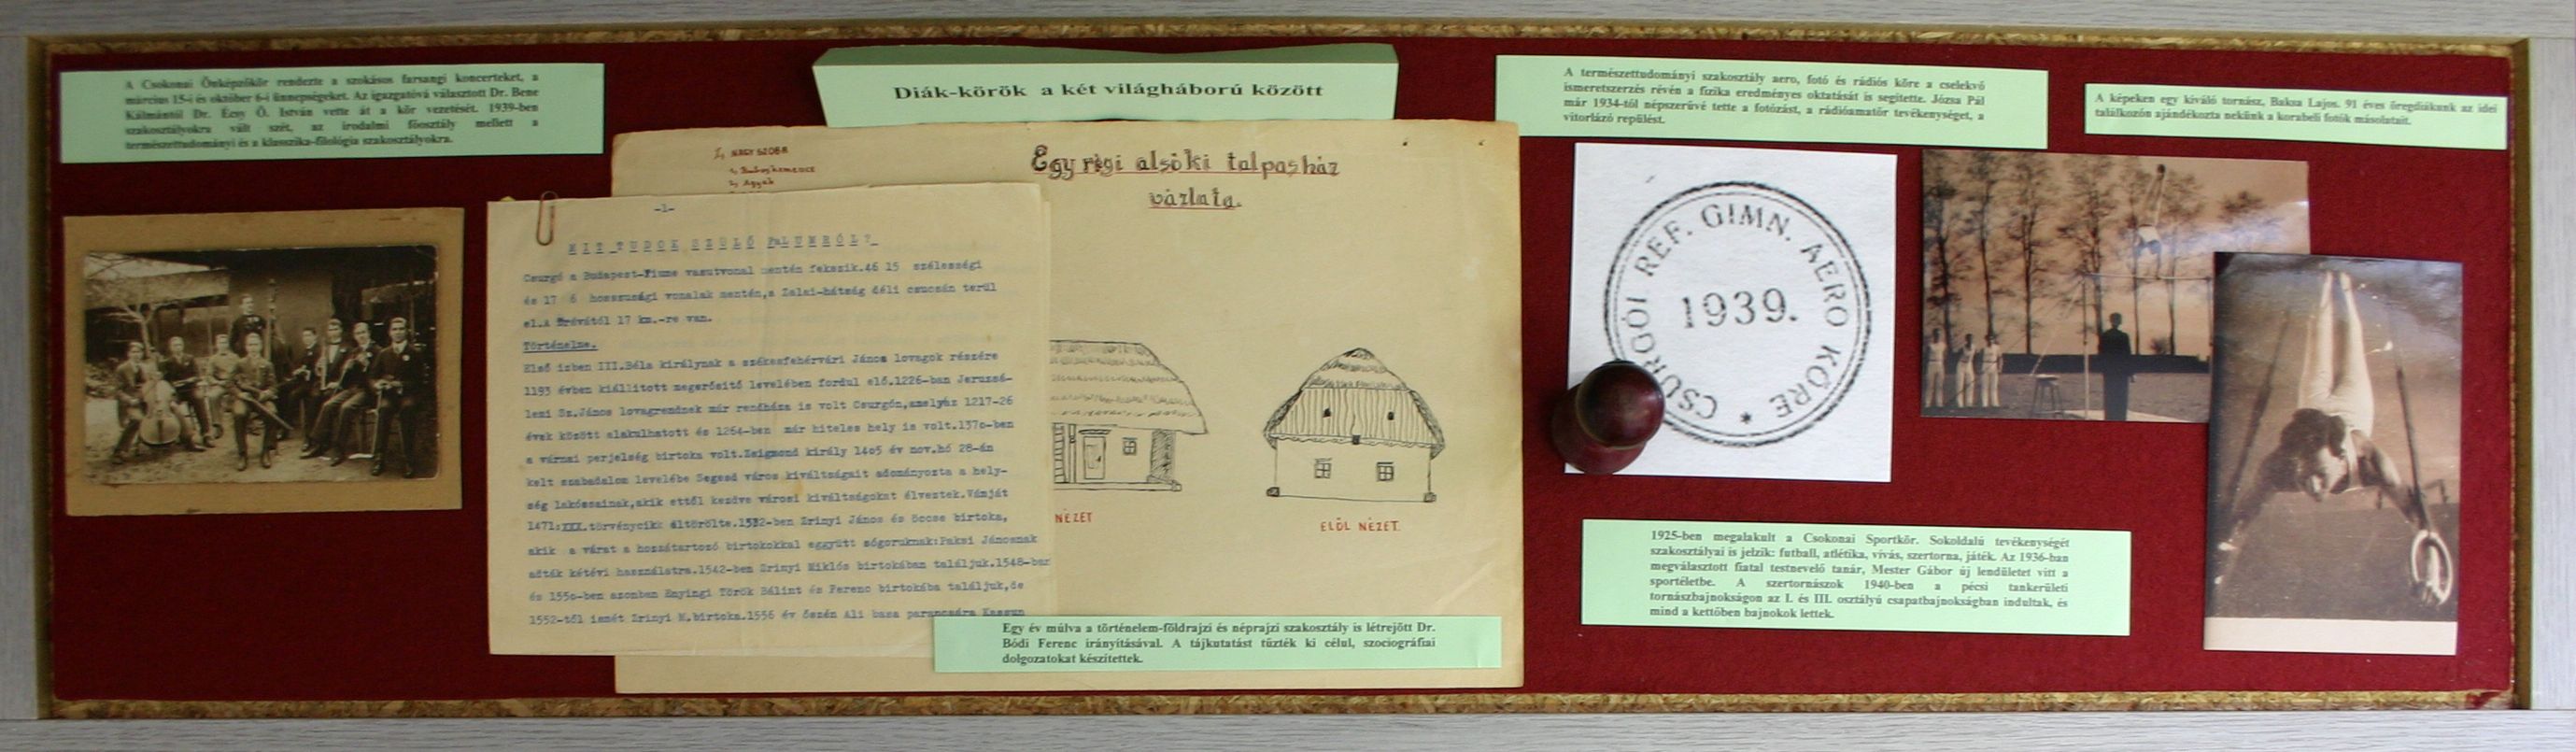 A Csokonai Önképzőkör rendezte a szokásos farsangi koncerteket, a
március 15-i és október 6-i ünnepségeket. Az igazgatóvá választott Dr. Bene
Kálmántól Dr. Écsy Ö. István vette át a kör vezetését. 1939-ben
szakosztályokra vált szét, az irodalmi főosztály mellett a
természettudományi és a klasszika-filológia szakosztályokra.
Diák-körök a két világháború között
A természettudományi szakosztály aero, fotó és rádiós köre a cselekvő
ismeretszerzés révén a fizika eredményes oktatását is segítette. Józsa Pál
már 1934-től népszerűvé tette a fotózást, a rádióamatőr tevékenységet, a
vitorlázó repülést.
A képeken egy kiváló tornász, Baksa Lajos. 91 éves öregdiákunk az idei
találkozón ajándékozta nekünk a korabeli fotók másolatait.
1, NAGY SZOBA
2, Agyak
Egy régi alsóki talpasház
vázlata.
NÉZET
ELŐL NÉZET.
-1-
MIT TUDOK SZÜLŐ FALUMRÓL?
Csurgó a Budapest-Fiume vasutvonal mentén fekszik.46 15 szélességi
és 17 6 hosszusági vonalak mentén,a Zalai-hátság déli csucsán terül
el.A Drávától 17 km.-re van.
Történelme.
Első izben III.Béla királynak a székesfehérvári János lovagok részére
1193 évben kiállitott megerősitő levelében fordul elő.1226-ban Jeruzsá-
lemi Sz.János lovagrendnek már rendháza is volt Csurgón,amelyáz 1217-26
évek között alakulhatott és 1264-ben már hiteles hely is volt.1370-ben
a vránai perjelség birtoka volt.Zsigmond király 14o5 év nov.hó 28-án
kelt szabadalom levelébe Segesd város kiváltságait adományozta a hely-
ség lakósainak,akik ettől kezdve városi kiváltságokat élveztek.Vámját
1471:XXX.törvénycikk eltörölte.1532-ben Zrinyi János és öccse birtoka,
akik a várat a hozzátartozó birtokokkal együtt sógoruknak:Paksi Jánosnak
adták kétévi használatra.1542-ben Zrinyi Miklós birtokában találjuk.1548-ban
és 155o-ben azonban Enyingi Török Bálint és Ferenc birtokába találjuk,de
1552-től ismét Zrinyi M.birtoka.1556 év őszén Ali basa parancsára
Egy év múlva a történelem-földrajzi és néprajzi szakosztály is létrejött Dr.
Bódi Ferenc irányításával. A tájkutatást tűzték ki célul, szociográfiai
dolgozatokat készítettek.
CSURGÓI REF. GIMN. AERO KÖRE *
1939.
1925-ben megalakult a Csokonai Sportkör. Sokoldalú tevékenységét
szakosztályai is jelzik: futball, atlétika, vívás, szertorna, játék. Az 1936-ban
megválasztott fiatal testnevelő tanár, Mester Gábor új lendületet vitt a
sportéletbe. A szertornászok 1940-ben a pécsi tankerületi
tornászbajnokságon az I. és III. osztályú csapatbajnokságban indultak, és
mind a kettőben bajnokok lettek.